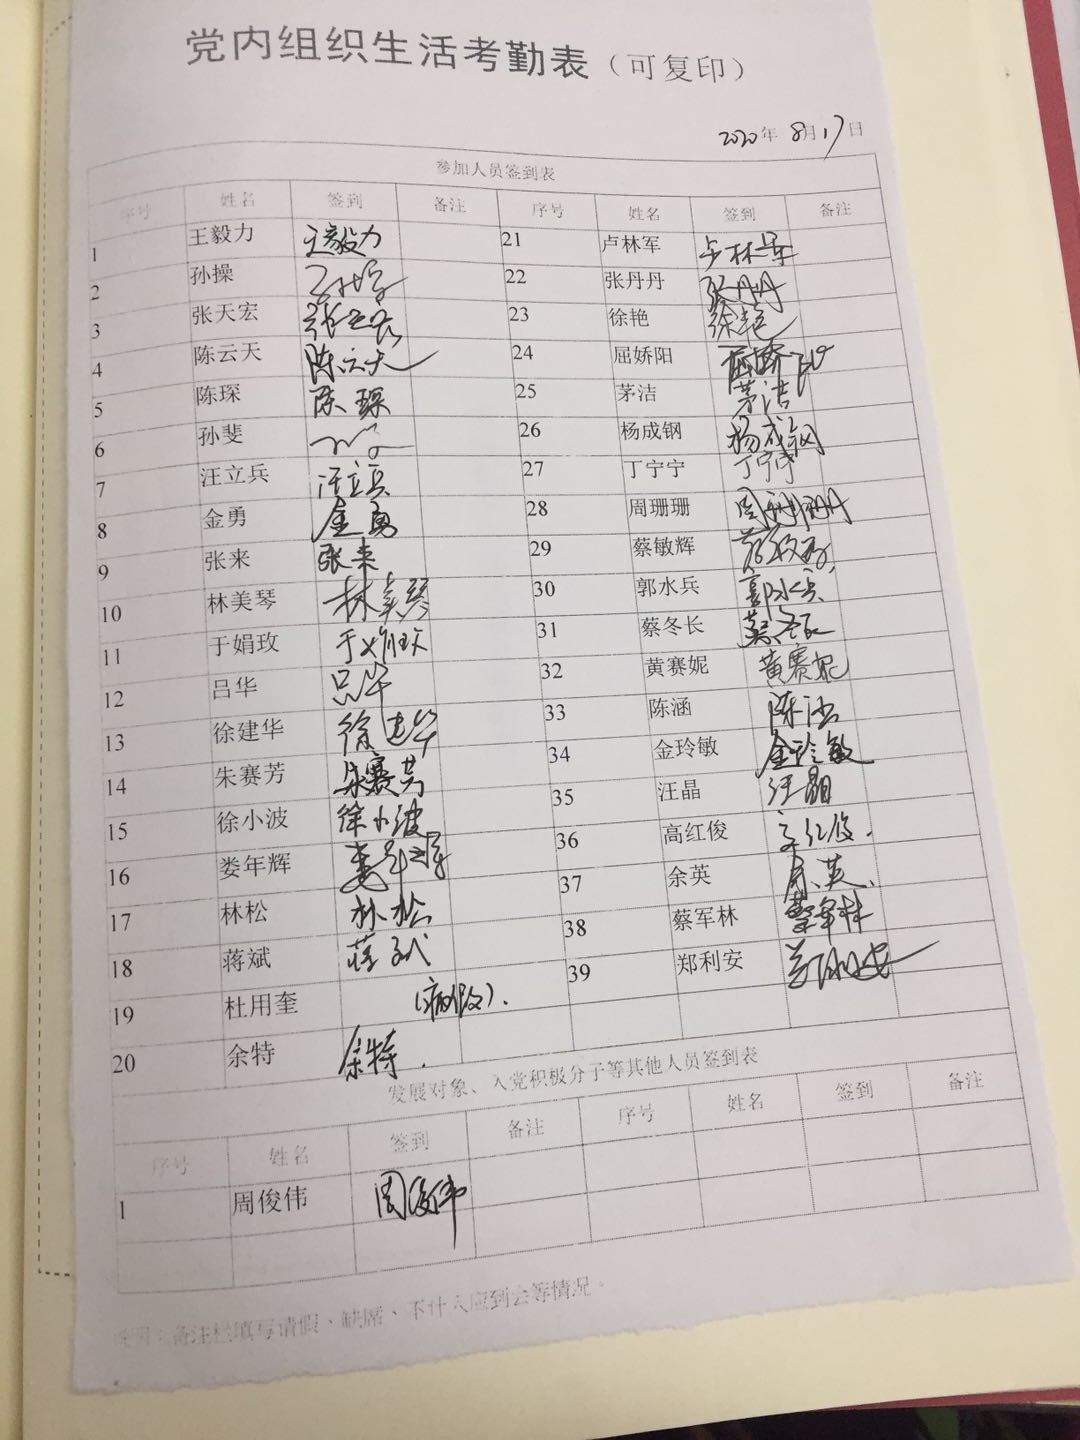 党内组织生活考勤表（可复印）
2020年 8月17日
参加人员签到表
序号 姓名 签到 备注 序号 姓名 签到 备注
1 王毅力 王毅力 21 卢林军 卢林军
2 孙操 22 张丹丹 张丹丹
3 张天宏 张天宏 23 徐艳 徐艳
4 陈云天 陈云天 24 屈娇阳 屈娇阳
5 陈琛 陈琛 25 茅洁 茅洁
6 孙斐 26 杨成钢 杨成钢
7 汪立兵 汪立兵 27 丁宁宁 丁宁宁
8 金勇 金勇 28 周珊珊 周珊珊
9 张来 张来 29 蔡敏辉 蔡敏辉
10 林美琴 林美琴 30 郭水兵 郭水兵
11 于娟玫 于娟玫 31 蔡冬长 蔡冬长
12 吕华 吕华 32 黄赛妮 黄赛妮
13 徐建华 徐建华 33 陈涵 陈涵
14 朱赛芳 朱赛芳 34 金玲敏 金玲敏
15 徐小波 徐小波 35 汪晶 汪晶
16 娄年辉 娄年辉 36 高红俊 高红俊.
17 林松 林松 37 余英 余英.
18 蒋斌 蒋斌 38 蔡军林 蔡军林
19 杜用奎 (病假). 39 郑利安 郑利安
20 余特 余特.
发展对象、入党积极分子等其他人员签到表
序号 姓名 签到 备注 序号 姓名 签到 备注
1 周俊伟 周俊伟
说明：备注栏填写请假、缺席、不计入应到会等情况。